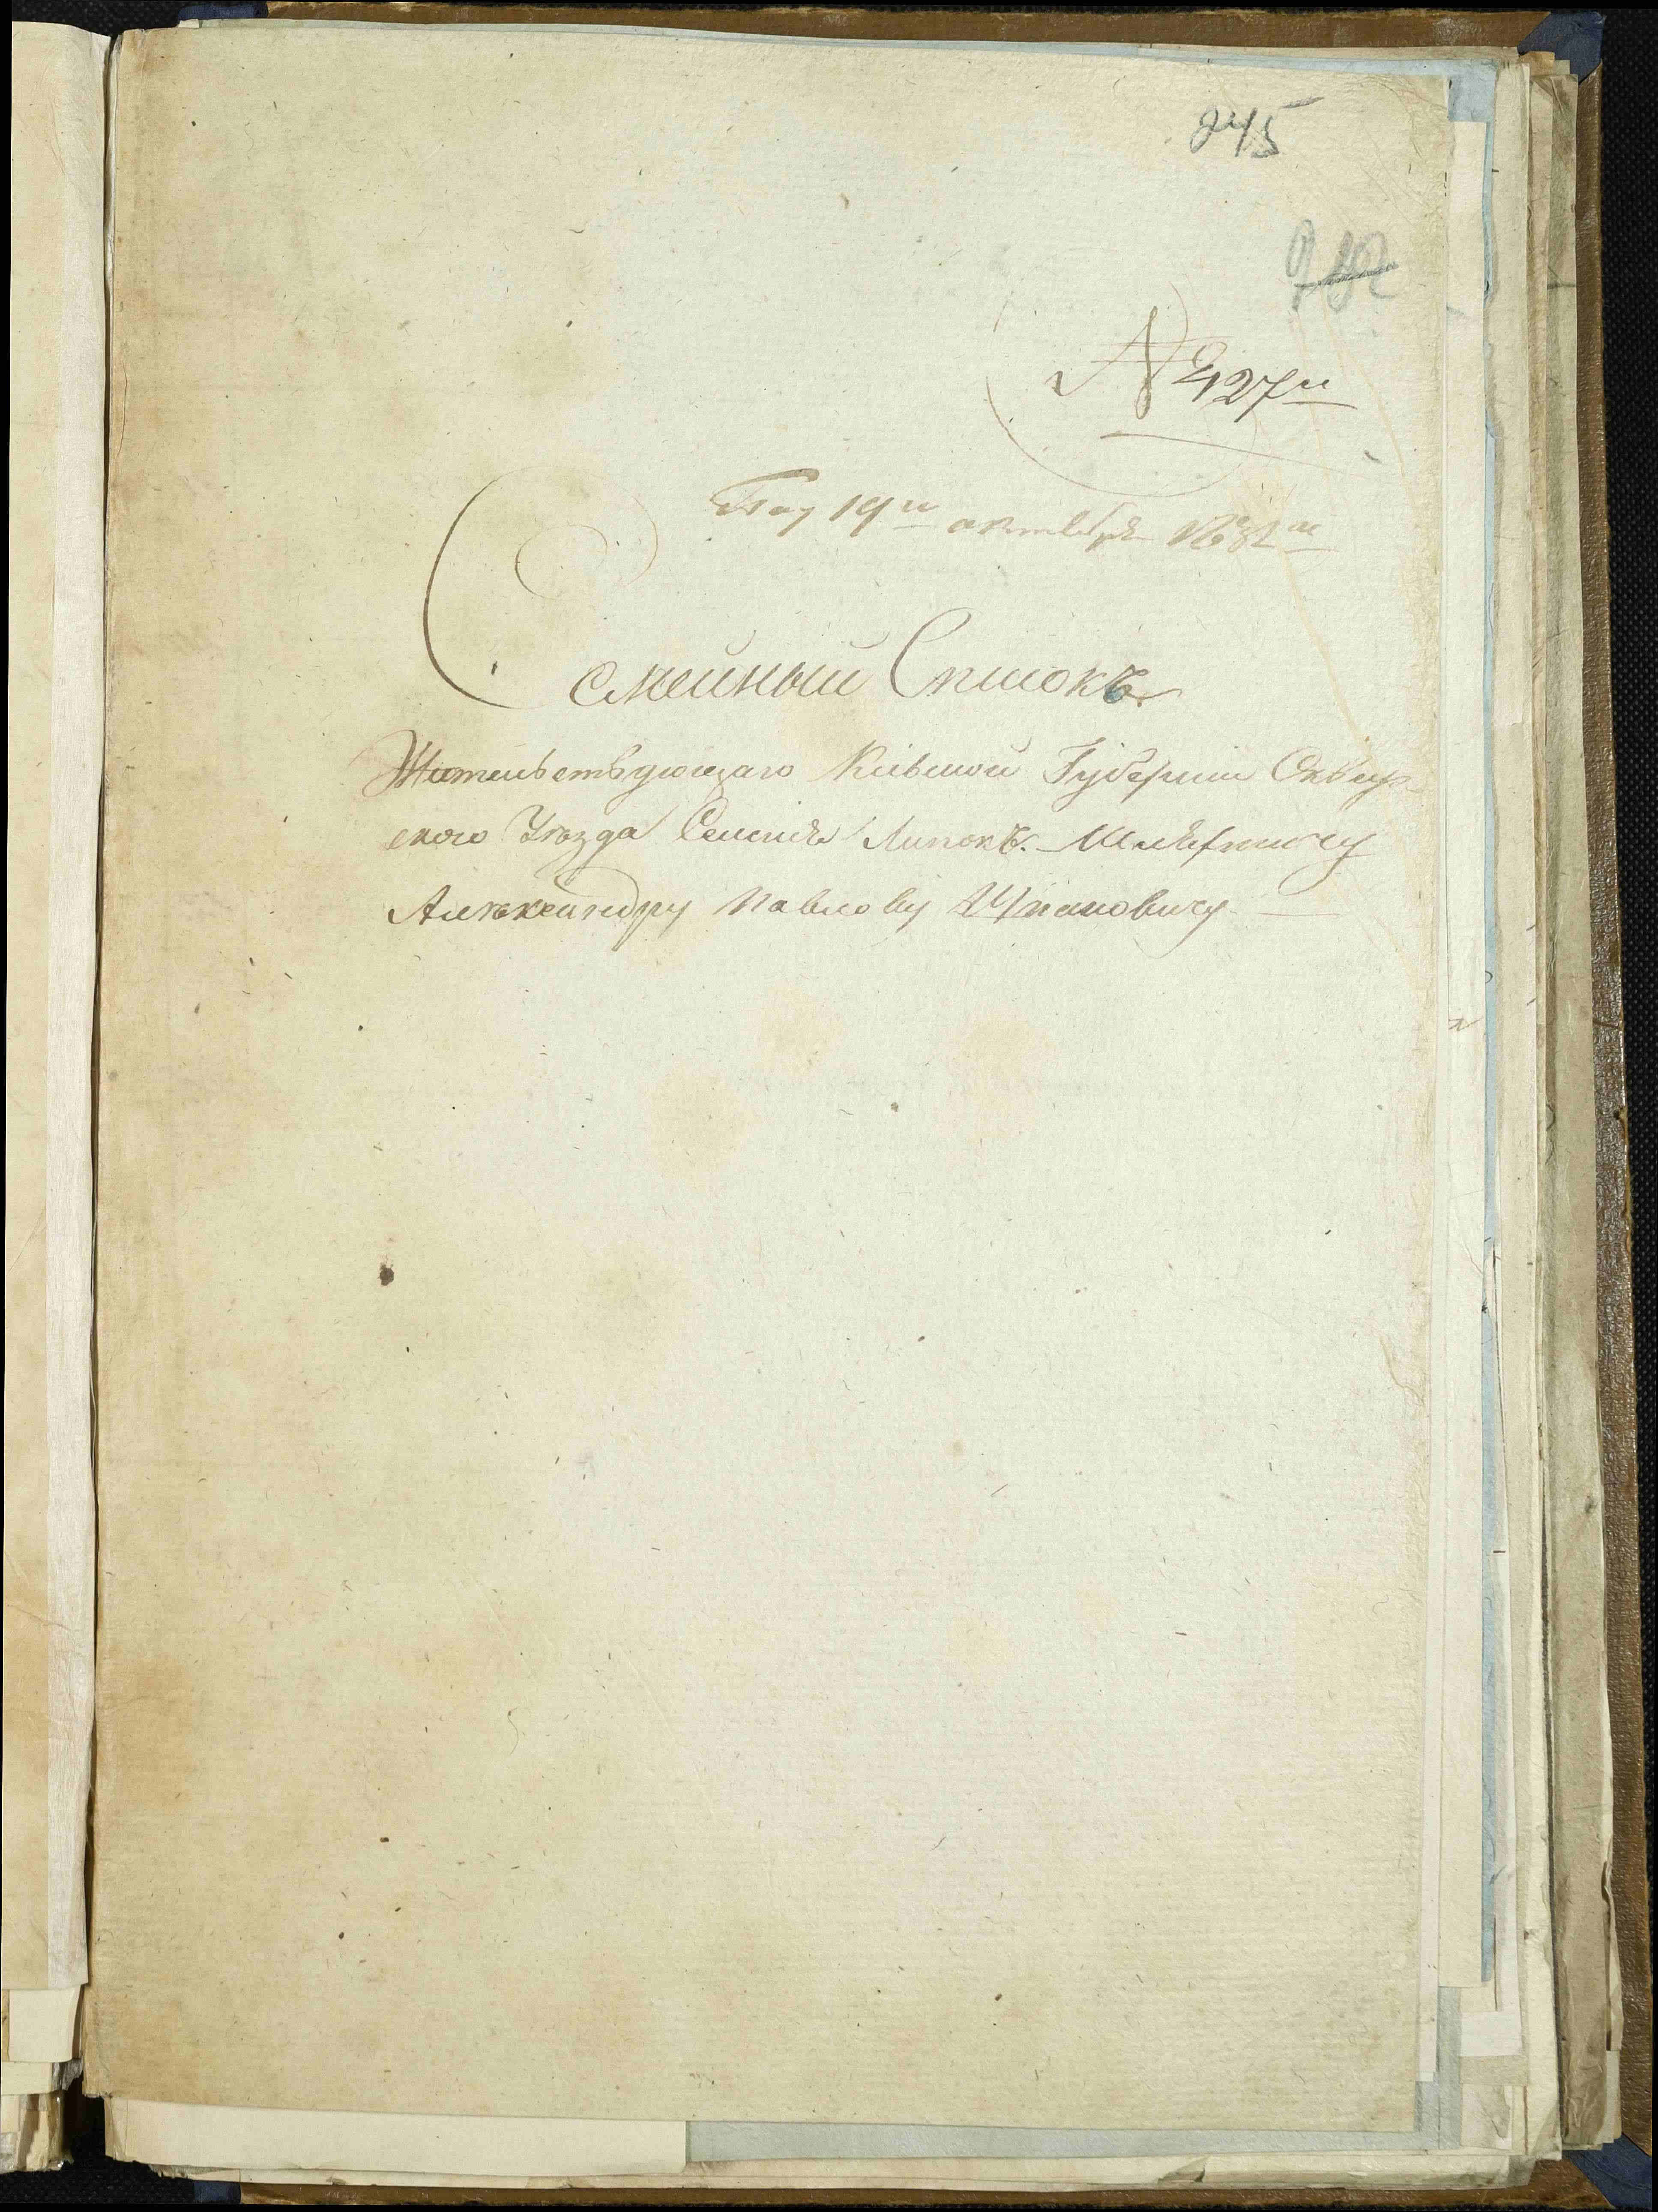 245
№ 427й
Под 19м октября № 82м
Семейный Списокъ
Жительствующаго Кіевской Губерніи Сквир-
ского Уезда Селеніи Липокъ. Шляхтичу
Алекксандру Павлову